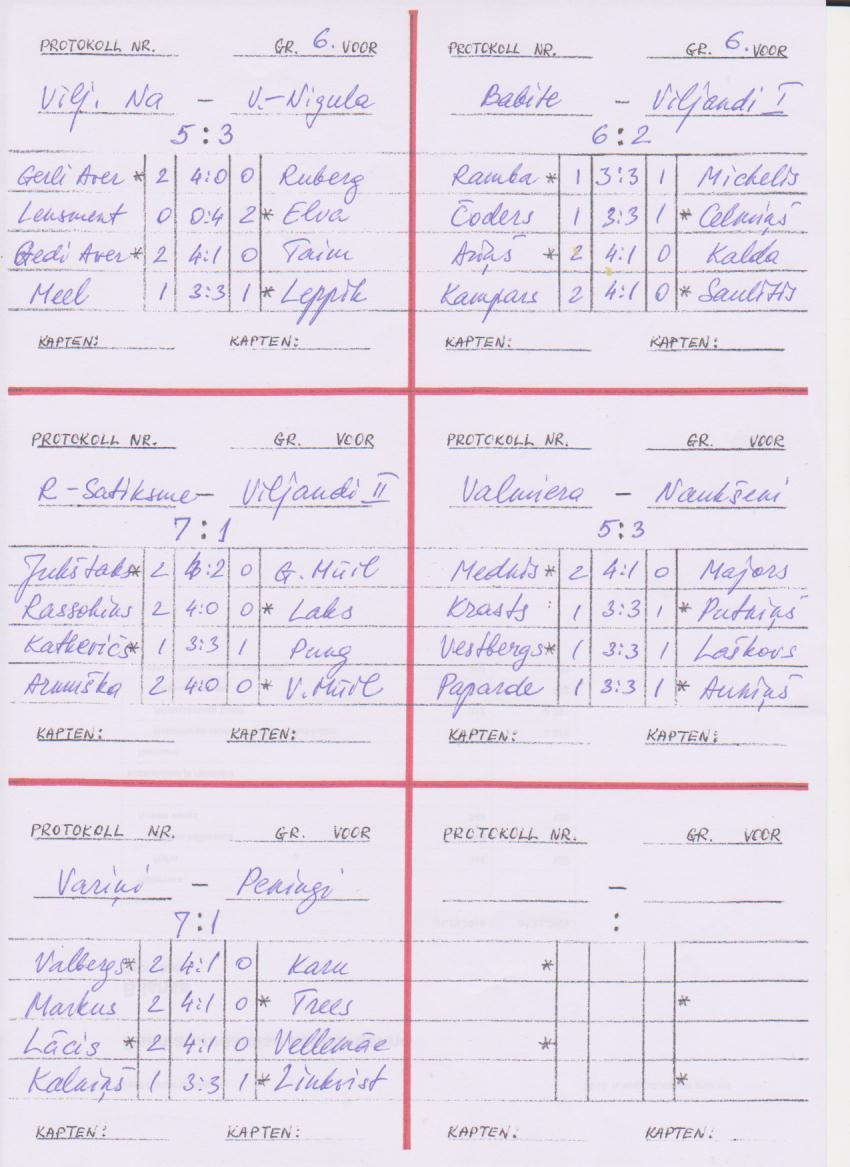 PROTOKOLL NR. GR. 6. VOOR
Vilj. Na - V.-Nigula
5:3
Gerli Aver * 2 4:0 0 Ruberg
Lensment 0 0:4 2 * Elva
Gedi Aver * 2 4:1 0 Taim
Meel 1 3:3 1 * Leppik
KAPTEN: KAPTEN:
PROTOKOLL NR. GR. 6. VOOR
Babite - Viljandi I
6:2
Ramba * 1 3:3 1 Michelis
Čoders 1 3:3 1 * Celmiņš
Ariņš * 2 4:1 0 Kalda
Kampars 2 4:1 0 * Saulitis
KAPTEN: KAPTEN:
PROTOKOLL NR. GR. VOOR
R-Satiksme - Viljandi II
7:1
Jukštaks * 2 4:2 0 G. Müil
Rassohins 2 4:0 0 * Laks
Katkevičs * 1 3:3 1 Pung
Arumiška 2 4:0 0 * V. Müil
KAPTEN: KAPTEN:
PROTOKOLL NR. GR. VOOR
Valmiera - Naukšeni
5:3
Mednis * 2 4:1 0 Majors
Krasts 1 3:3 1 * Putniņš
Vestbergs * 1 3:3 1 Laškovs
Paparde 1 3:3 1 * Auniņš
KAPTEN: KAPTEN:
PROTOKOLL NR. GR. VOOR
Variņi - Peningi
7:1
Valbergs * 2 4:1 0 Karu
Markus 2 4:1 0 * Trees
Lācis * 2 4:1 0 Vellemäe
Kalniņš 1 3:3 1 * Linkvist
KAPTEN: KAPTEN:
PROTOKOLL NR. GR. VOOR
-
:
*
*
*
*
KAPTEN: KAPTEN: